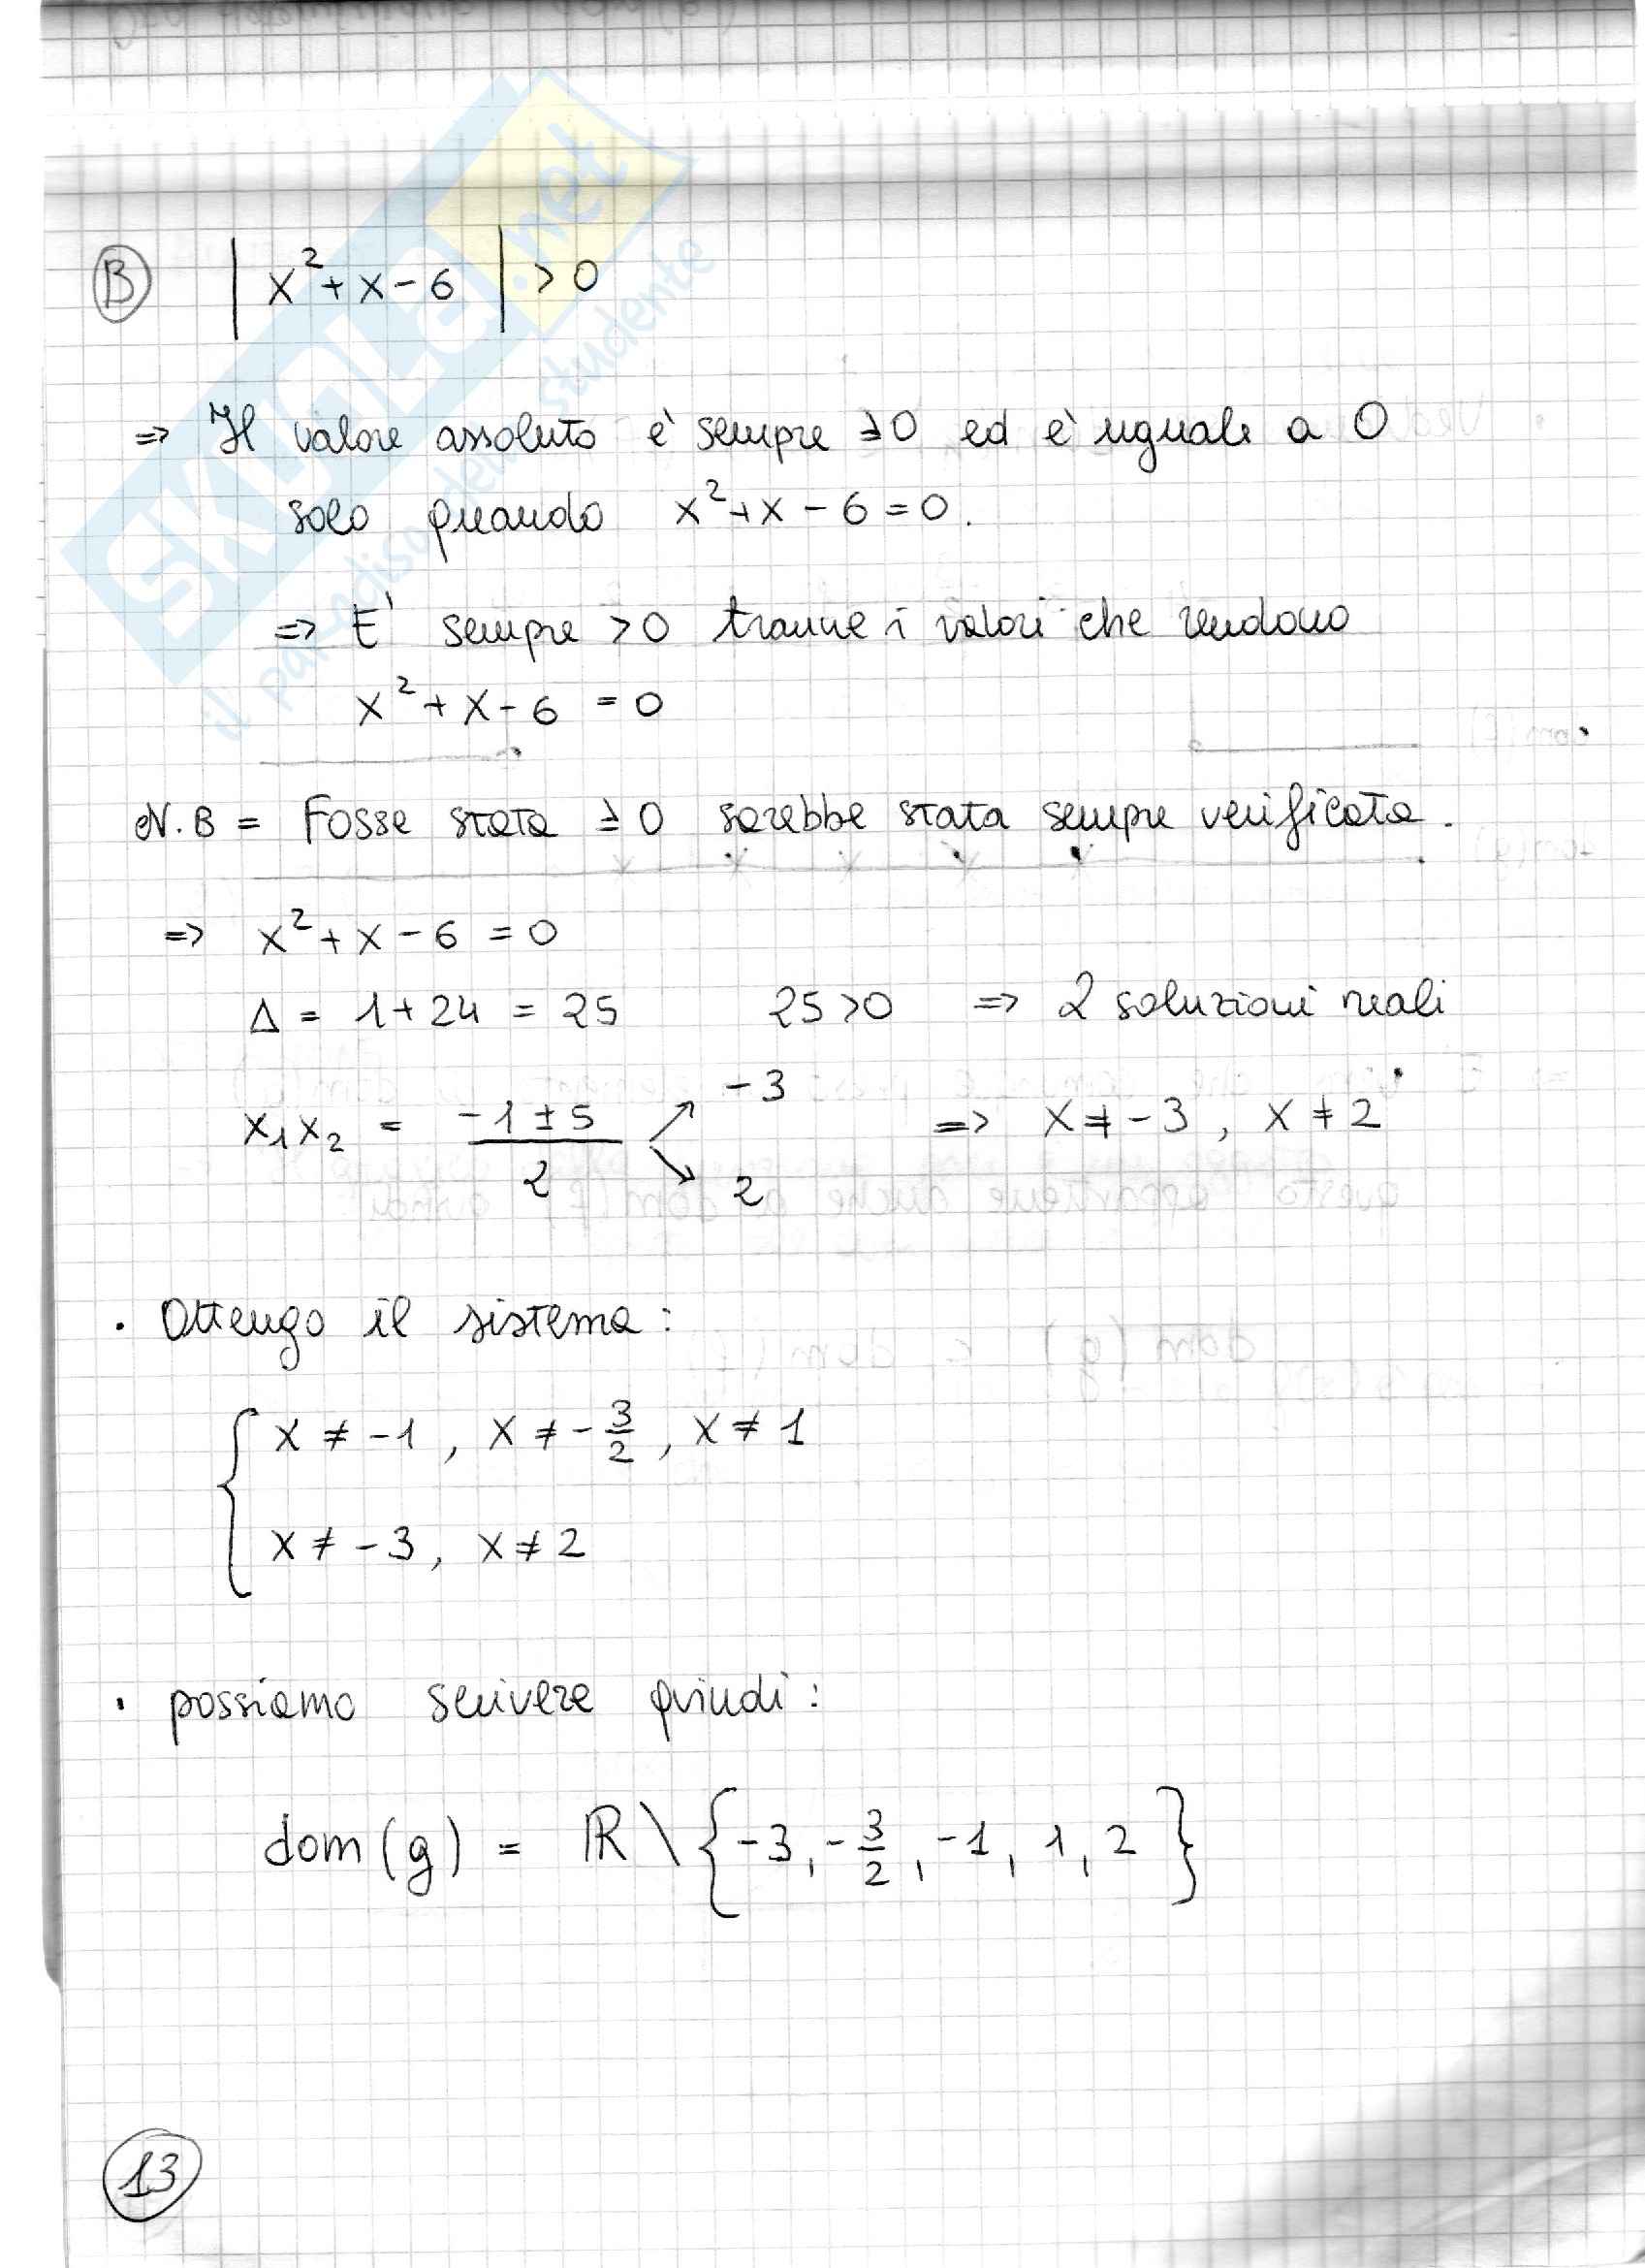 B |x²+x-6|>0
=> Il valore assoluto è sempre ≥0 ed è uguale a 0
solo quando x²+x-6=0.
=> E' sempre >0 tranne i valori che rendono
x²+x-6 =0
N.B = Fosse stata ≥0 sarebbe stata sempre verificata.
=> x²+x-6=0
Δ = 1+24 = 25 25>0 => 2 soluzioni reali
x₁x₂ = (-1±5)/2 ↗ -3 ↘ 2 => x≠-3, x≠2
• Ottengo il sistema:
{ x≠-1, x≠-3/2, x≠1
x≠-3, x≠2
• possiamo scrivere quindi:
dom(g) = ℝ\{-3,-3/2,-1,1,2}
13
SKUOLA.net
il paradiso dello studente